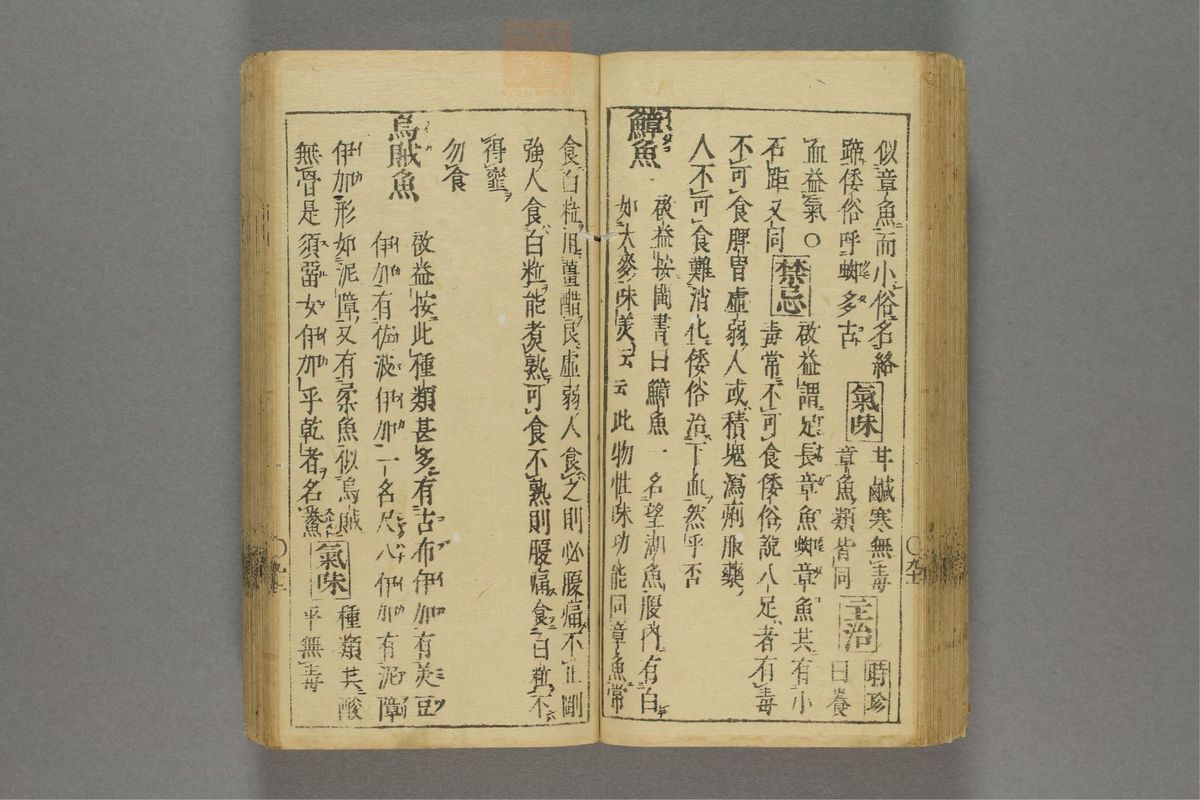 似章魚而小俗名絡
蹄倭俗呼蜘多古
氣味
甘鹹寒無毒
章魚類皆同
主治
時珍
曰養
血益氣〇
啟益謂足長章魚蜘章魚其有小
石距又同
禁忌
毒常不可食倭俗說八足者有毒
不可食脾胃虛弱人或積塊瀉痢服藥
人不可食難消化倭俗治下血然乎否
鱆魚
啟益按閩書曰鱆魚一名望湖魚腹內有白
如大麥味美云云此物性味功能同章魚常
食白粒用薑醋良虛弱人食之則必腹痛不止剛
強人食白粒能煮熟可食不熟則腹痛食白粒不
得
勿食
烏賊魚
イカ
啟益按此種類甚多有古布伊加有美豆
伊加有佐波伊加一名尺八伊加有泥障
伊加形如泥障又有柔魚似烏賊
無骨是須留女伊加乎乾者名鯗
氣味
種類其酸
平無毒